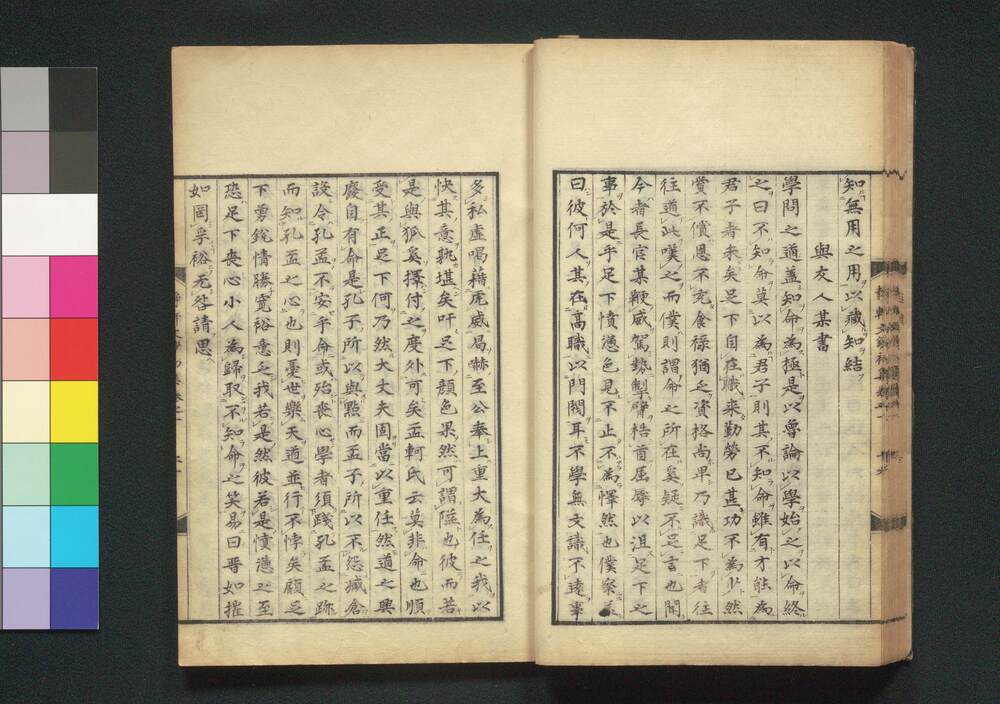 知無用之用以藏知結
與友人某書
學問之道蓋知命為極是以魯論以學始之以命終
之曰不知命莫以為君子則其不知命雖有才能為
君子者未矣足下自在職來勤勞已甚功不為少然
賞不償恩不充食祿猶乏資格尚卑乃識足下者往
往道此嘆之而僕則謂命之所在奚疑不足言也聞
今者長官某鞭威駕勢掣肘梏首屈辱以沮足下之
事於是乎足下憤懣色見不止不為懌然也僕察
曰彼何人其在高職以門閥耳不學無文識不達事
多私虛喝藉虎威局嚇至公奉上重大為任之我以
快其意孰堪矣吁足下顏色果然可謂隘也彼而若
是與狐奚擇付之度外可矣孟軻氏云莫非命也順
受其正足下何乃然大丈夫固當以重任然道之興
廢自有命是孔子所以與點而孟子所以不怨臧倉
設令孔孟不安乎命或殆喪心學者須踐孔孟之跡
而知孔孟之心也則憂世樂天道並行不悖矣顧足
下勇銳情勝寬裕意乏我若是然彼若是憤懣之至
恐足下喪心小人為歸取不知命之笑易曰晉如摧
如罔孚裕无咎請思